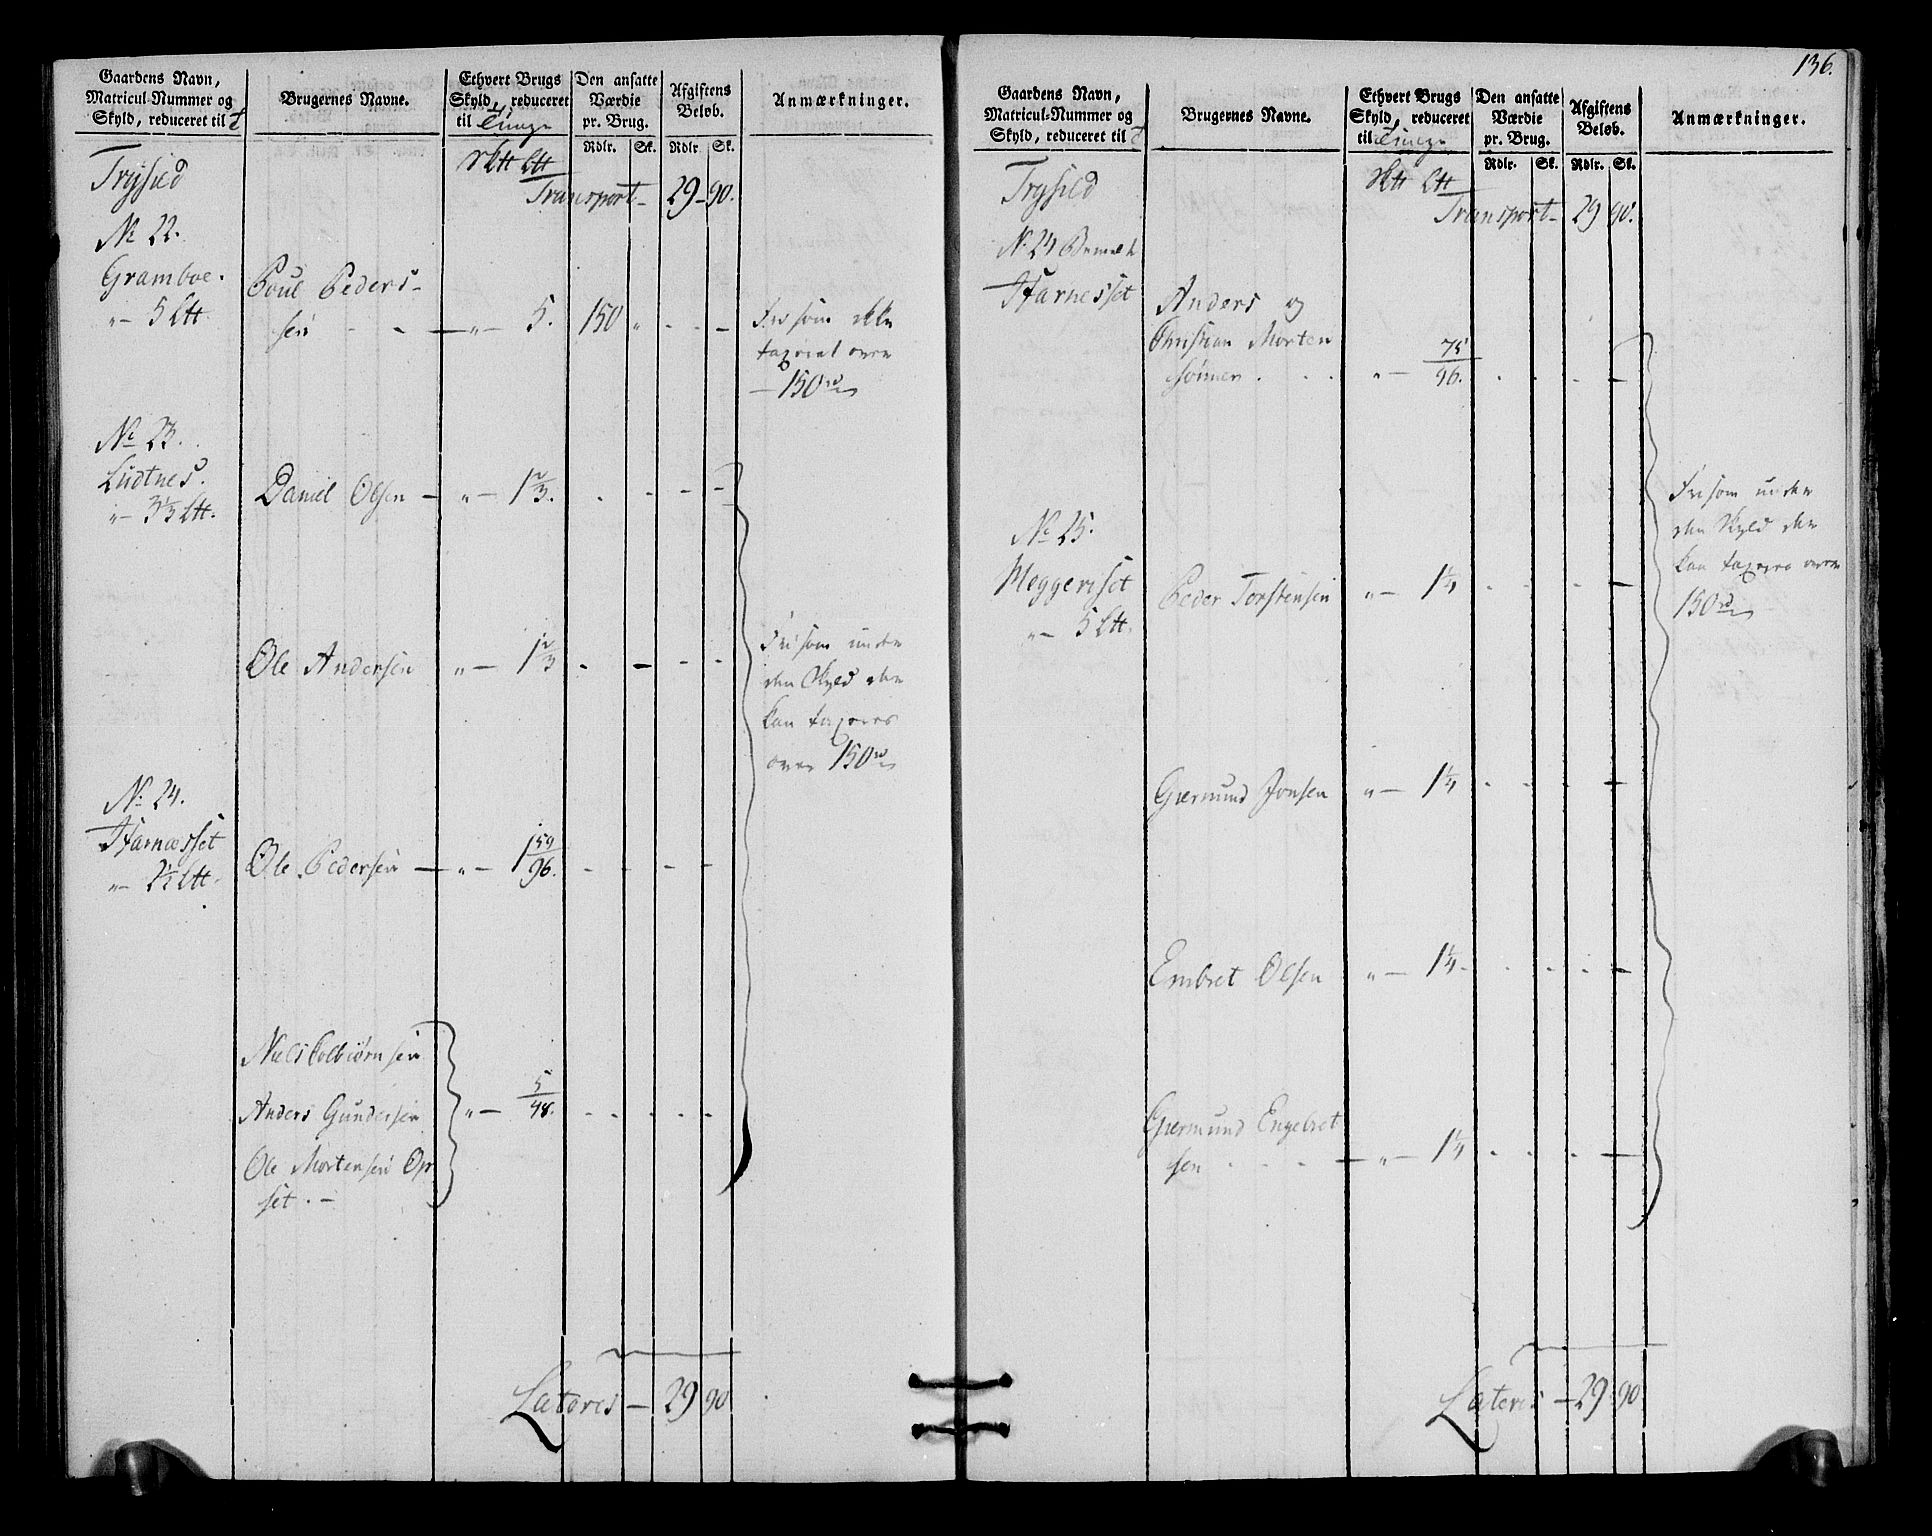 Gaardens Navn,
Matricul-Nummer og
Skyld, reduceret til
Brugernes Navne.
Ethvert Brugs
Skyld, reduceret
til Tunge
Den ansatte
Værdie
pr. Brug.
Rdlr. Sk.
Afgiftens
Beløb.
Rdlr. Sk.
Anmærkninger.
Trysild
Transport - 29 - 90.
No 22.
Gramboe.
"- 5 Ltt
Poul Peders-
sen - - - "- 5. 150 " - - -
Fri som ikke
taxeret over
- 150 rd
No 23.
Ludtnes.
"- 3⅓ Ltt.
Daniel Olsen - "- 1⅔. - - - -
Ole Andersen "- 1⅔ - - - -
Fri som under
den Skyld der
kan taxeres
over 150 rd
No 24.
Harnæsset
"- 2½ Ltt.
Ole Pedersen - "- 1 59/96. - - - -
Niels Colbiørnsen
Anders Gundersen "- 5/48. - - - -
Ole Mortensen Op-
set. -
Lateris - 29 90
136.
Gaardens Navn,
Matricul-Nummer og
Skyld, reduceret til
Brugernes Navne.
Ethvert Brugs
Skyld, reduceret
til Tunge
Den ansatte
Værdie
pr. Brug.
Rdlr. Sk.
Afgiftens
Beløb.
Rdlr. Sk.
Anmærkninger.
Trysild
Transport - 29 90.
No 24
Harnesset
Anders og
Christian Morten
sønner . . . "- 75/96. - - - -
No 25.
Meggeriset
"- 5 Ltt.
Peder Torstensen "- 1¼ - - - -
Fri som under
den Skyld der
kan taxeres over
150 rd
Giermund Jonsen "- 1¼ - - - -
Embret Olsen "- 1¼ - - - -
Giermund Engebret
sen - - - - "- 1¼ - - - -
Lateris - 29 90